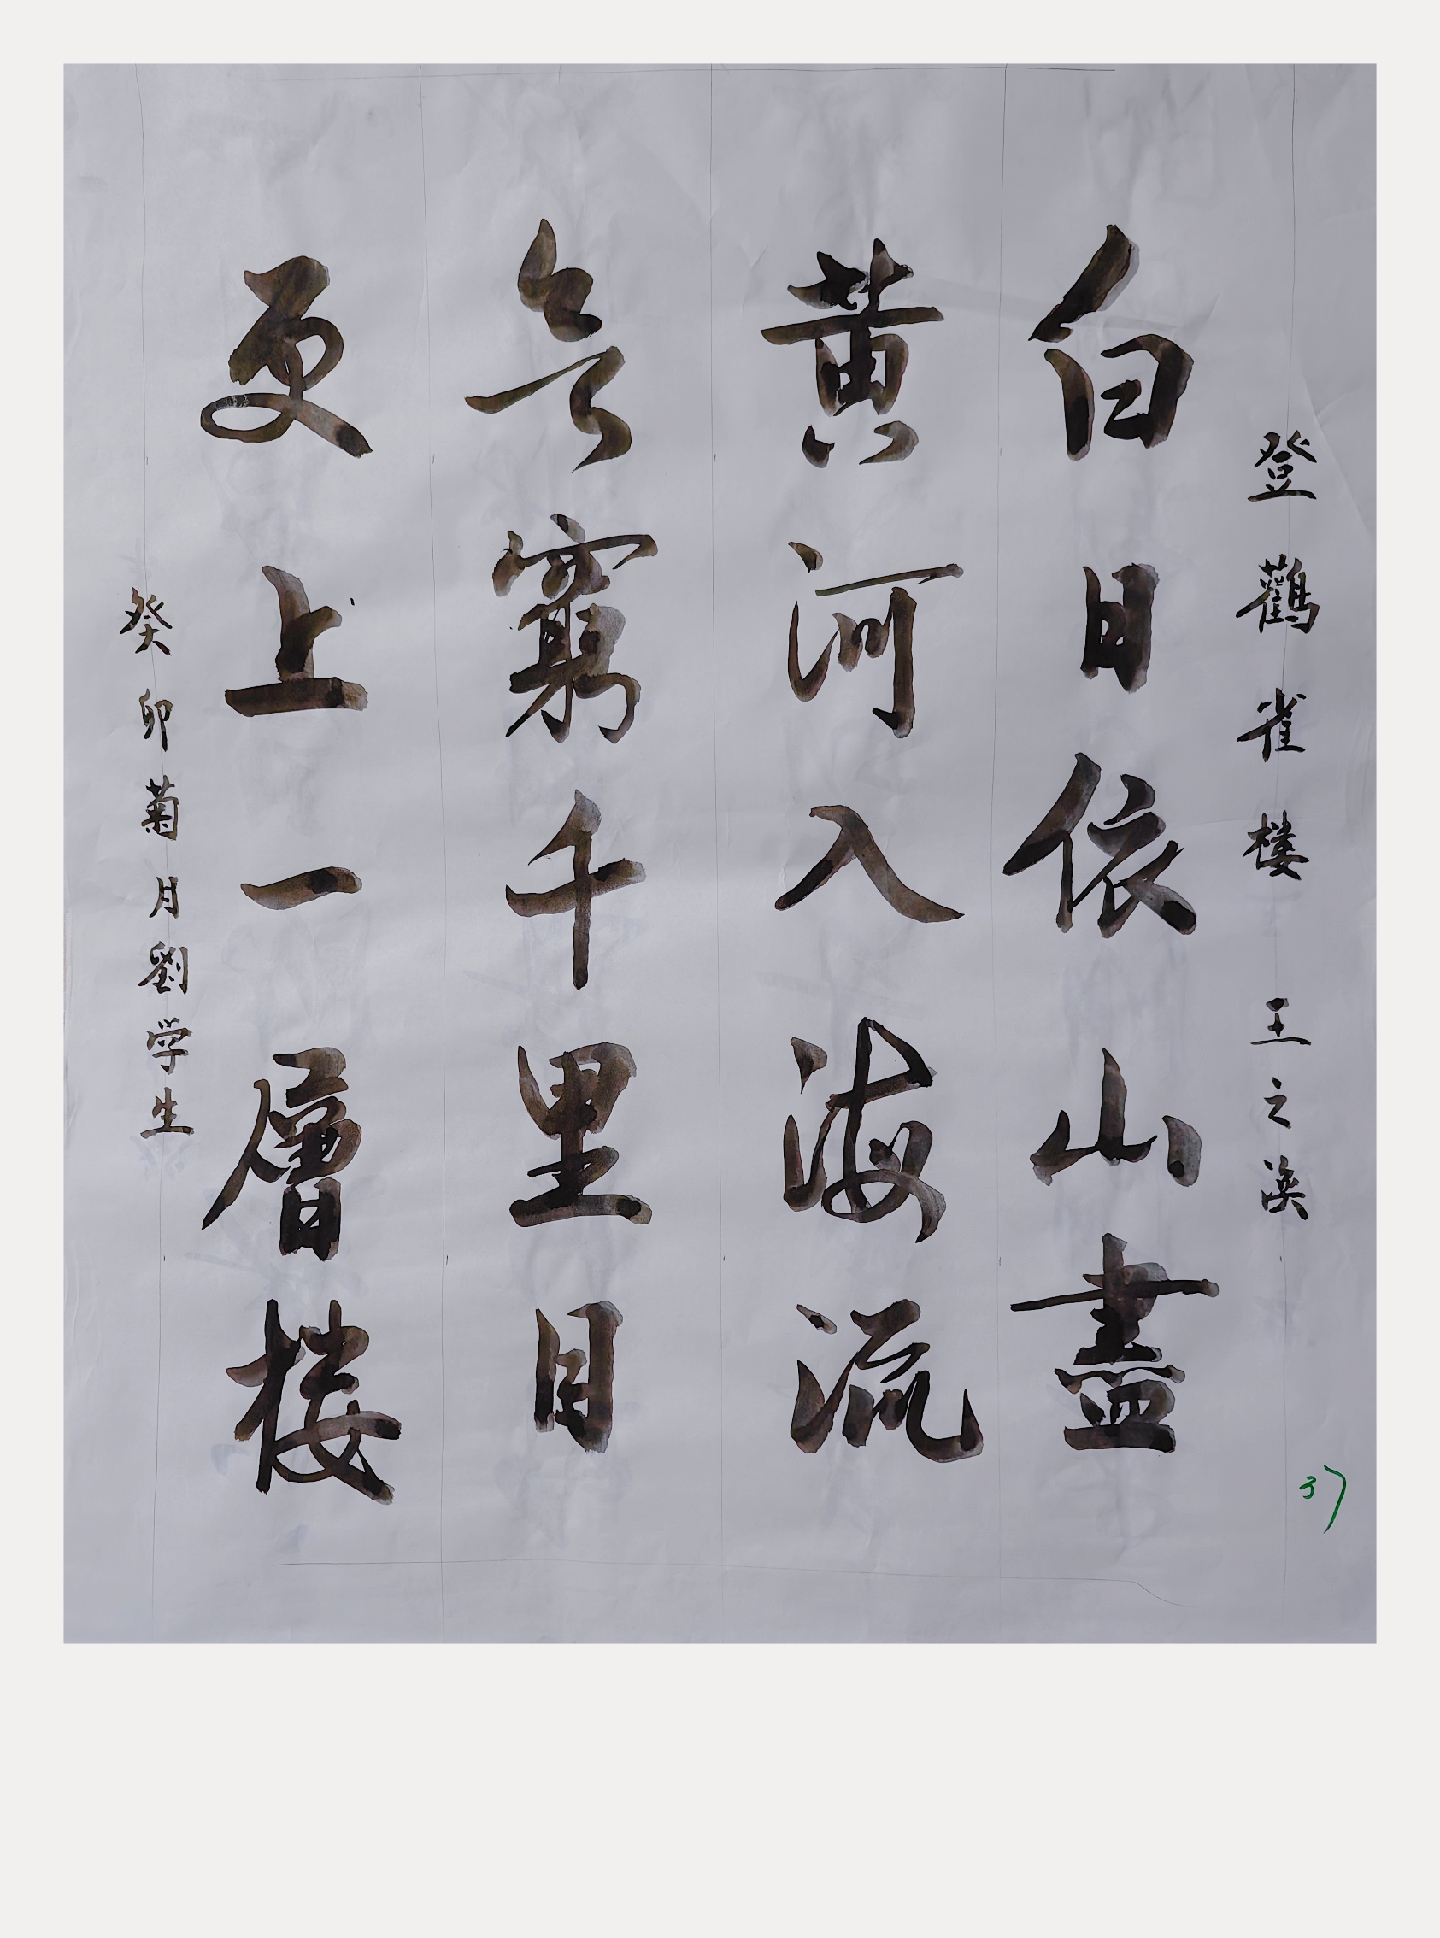 登鸛雀楼 王之渙
白日依山盡
黄河入海流
欲窮千里目
更上一層楼
癸卯菊月劉学生
37